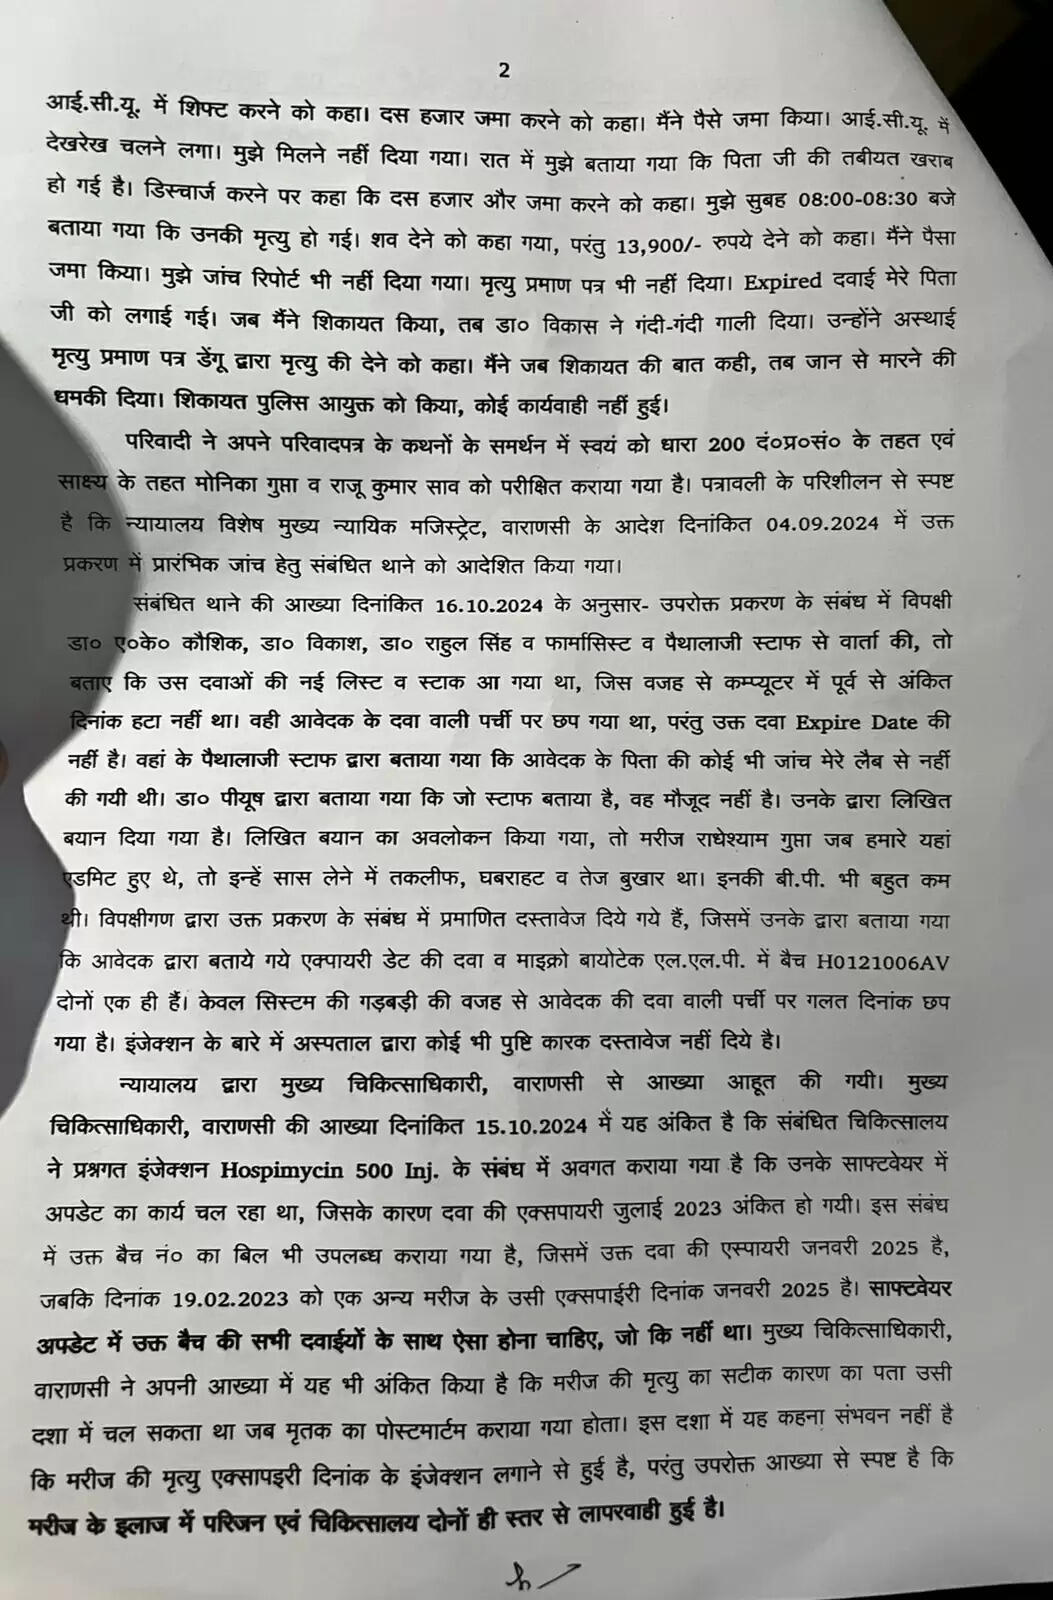 2
आई.सी.यू. में शिफ्ट करने को कहा। दस हजार जमा करने को कहा। मैंने पैसे जमा किया। आई.सी.यू. में
देखरेख चलने लगा। मुझे मिलने नहीं दिया गया। रात में मुझे बताया गया कि पिता जी की तबीयत खराब
हो गई है। डिस्चार्ज करने पर कहा कि दस हजार और जमा करने को कहा। मुझे सुबह 08:00-08:30 बजे
बताया गया कि उनकी मृत्यु हो गई। शव देने को कहा गया, परंतु 13,900/- रुपये देने को कहा। मैंने पैसा
जमा किया। मुझे जांच रिपोर्ट भी नहीं दिया गया। मृत्यु प्रमाण पत्र भी नहीं दिया। Expired दवाई मेरे पिता
जी को लगाई गई। जब मैंने शिकायत किया, तब डा० विकास ने गंदी-गंदी गाली दिया। उन्होंने अस्थाई
मृत्यु प्रमाण पत्र डेंगू द्वारा मृत्यु की देने को कहा। मैंने जब शिकायत की बात कही, तब जान से मारने की
धमकी दिया। शिकायत पुलिस आयुक्त को किया, कोई कार्यवाही नहीं हुई।
परिवादी ने अपने परिवादपत्र के कथनों के समर्थन में स्वयं को धारा 200 दं०प्र०सं० के तहत एवं
साक्ष्य के तहत मोनिका गुप्ता व राजू कुमार साव को परीक्षित कराया गया है। पत्रावली के परिशीलन से स्पष्ट
है कि न्यायालय विशेष मुख्य न्यायिक मजिस्ट्रेट, वाराणसी के आदेश दिनांकित 04.09.2024 में उक्त
प्रकरण में प्रारंभिक जांच हेतु संबंधित थाने को आदेशित किया गया।
संबंधित थाने की आख्या दिनांकित 16.10.2024 के अनुसार- उपरोक्त प्रकरण के संबंध में विपक्षी
डा० ए०के० कौशिक, डा० विकाश, डा० राहुल सिंह व फार्मासिस्ट व पैथालाजी स्टाफ से वार्ता की, तो
बताए कि उस दवाओं की नई लिस्ट व स्टाक आ गया था, जिस वजह से कम्प्यूटर में पूर्व से अंकित
दिनांक हटा नहीं था। वही आवेदक के दवा वाली पर्ची पर छप गया था, परंतु उक्त दवा Expire Date की
नहीं है। वहां के पैथालाजी स्टाफ द्वारा बताया गया कि आवेदक के पिता की कोई भी जांच मेरे लैब से नहीं
की गयी थी। डा० पीयूष द्वारा बताया गया कि जो स्टाफ बताया है, वह मौजूद नहीं है। उनके द्वारा लिखित
बयान दिया गया है। लिखित बयान का अवलोकन किया गया, तो मरीज राधेश्याम गुप्ता जब हमारे यहां
एडमिट हुए थे, तो इन्हें सास लेने में तकलीफ, घबराहट व तेज बुखार था। इनकी बी.पी. भी बहुत कम
थी। विपक्षीगण द्वारा उक्त प्रकरण के संबंध में प्रमाणित दस्तावेज दिये गये हैं, जिसमें उनके द्वारा बताया गया
कि आवेदक द्वारा बताये गये एक्पायरी डेट की दवा व माइक्रो बायोटेक एल.एल.पी. में बैच H0121006AV
दोनों एक ही हैं। केवल सिस्टम की गड़बड़ी की वजह से आवेदक की दवा वाली पर्ची पर गलत दिनांक छप
गया है। इंजेक्शन के बारे में अस्पताल द्वारा कोई भी पुष्टि कारक दस्तावेज नहीं दिये है।
न्यायालय द्वारा मुख्य चिकित्साधिकारी, वाराणसी से आख्या आहूत की गयी। मुख्य
चिकित्साधिकारी, वाराणसी की आख्या दिनांकित 15.10.2024 में यह अंकित है कि संबंधित चिकित्सालय
ने प्रश्नगत इंजेक्शन Hospimycin 500 Inj. के संबंध में अवगत कराया गया है कि उनके साफ्टवेयर में
अपडेट का कार्य चल रहा था, जिसके कारण दवा की एक्सपायरी जुलाई 2023 अंकित हो गयी। इस संबंध
में उक्त बैच नं० का बिल भी उपलब्ध कराया गया है, जिसमें उक्त दवा की एस्पायरी जनवरी 2025 है,
जबकि दिनांक 19.02.2023 को एक अन्य मरीज के उसी एक्सपाईरी दिनांक जनवरी 2025 है। साफ्टवेयर
अपडेट में उक्त बैच की सभी दवाईयों के साथ ऐसा होना चाहिए, जो कि नहीं था। मुख्य चिकित्साधिकारी,
वाराणसी ने अपनी आख्या में यह भी अंकित किया है कि मरीज की मृत्यु का सटीक कारण का पता उसी
दशा में चल सकता था जब मृतक का पोस्टमार्टम कराया गया होता। इस दशा में यह कहना संभवन नहीं है
कि मरीज की मृत्यु एक्सापइरी दिनांक के इंजेक्शन लगाने से हुई है, परंतु उपरोक्त आख्या से स्पष्ट है कि
मरीज के इलाज में परिजन एवं चिकित्सालय दोनों ही स्तर से लापरवाही हुई है।